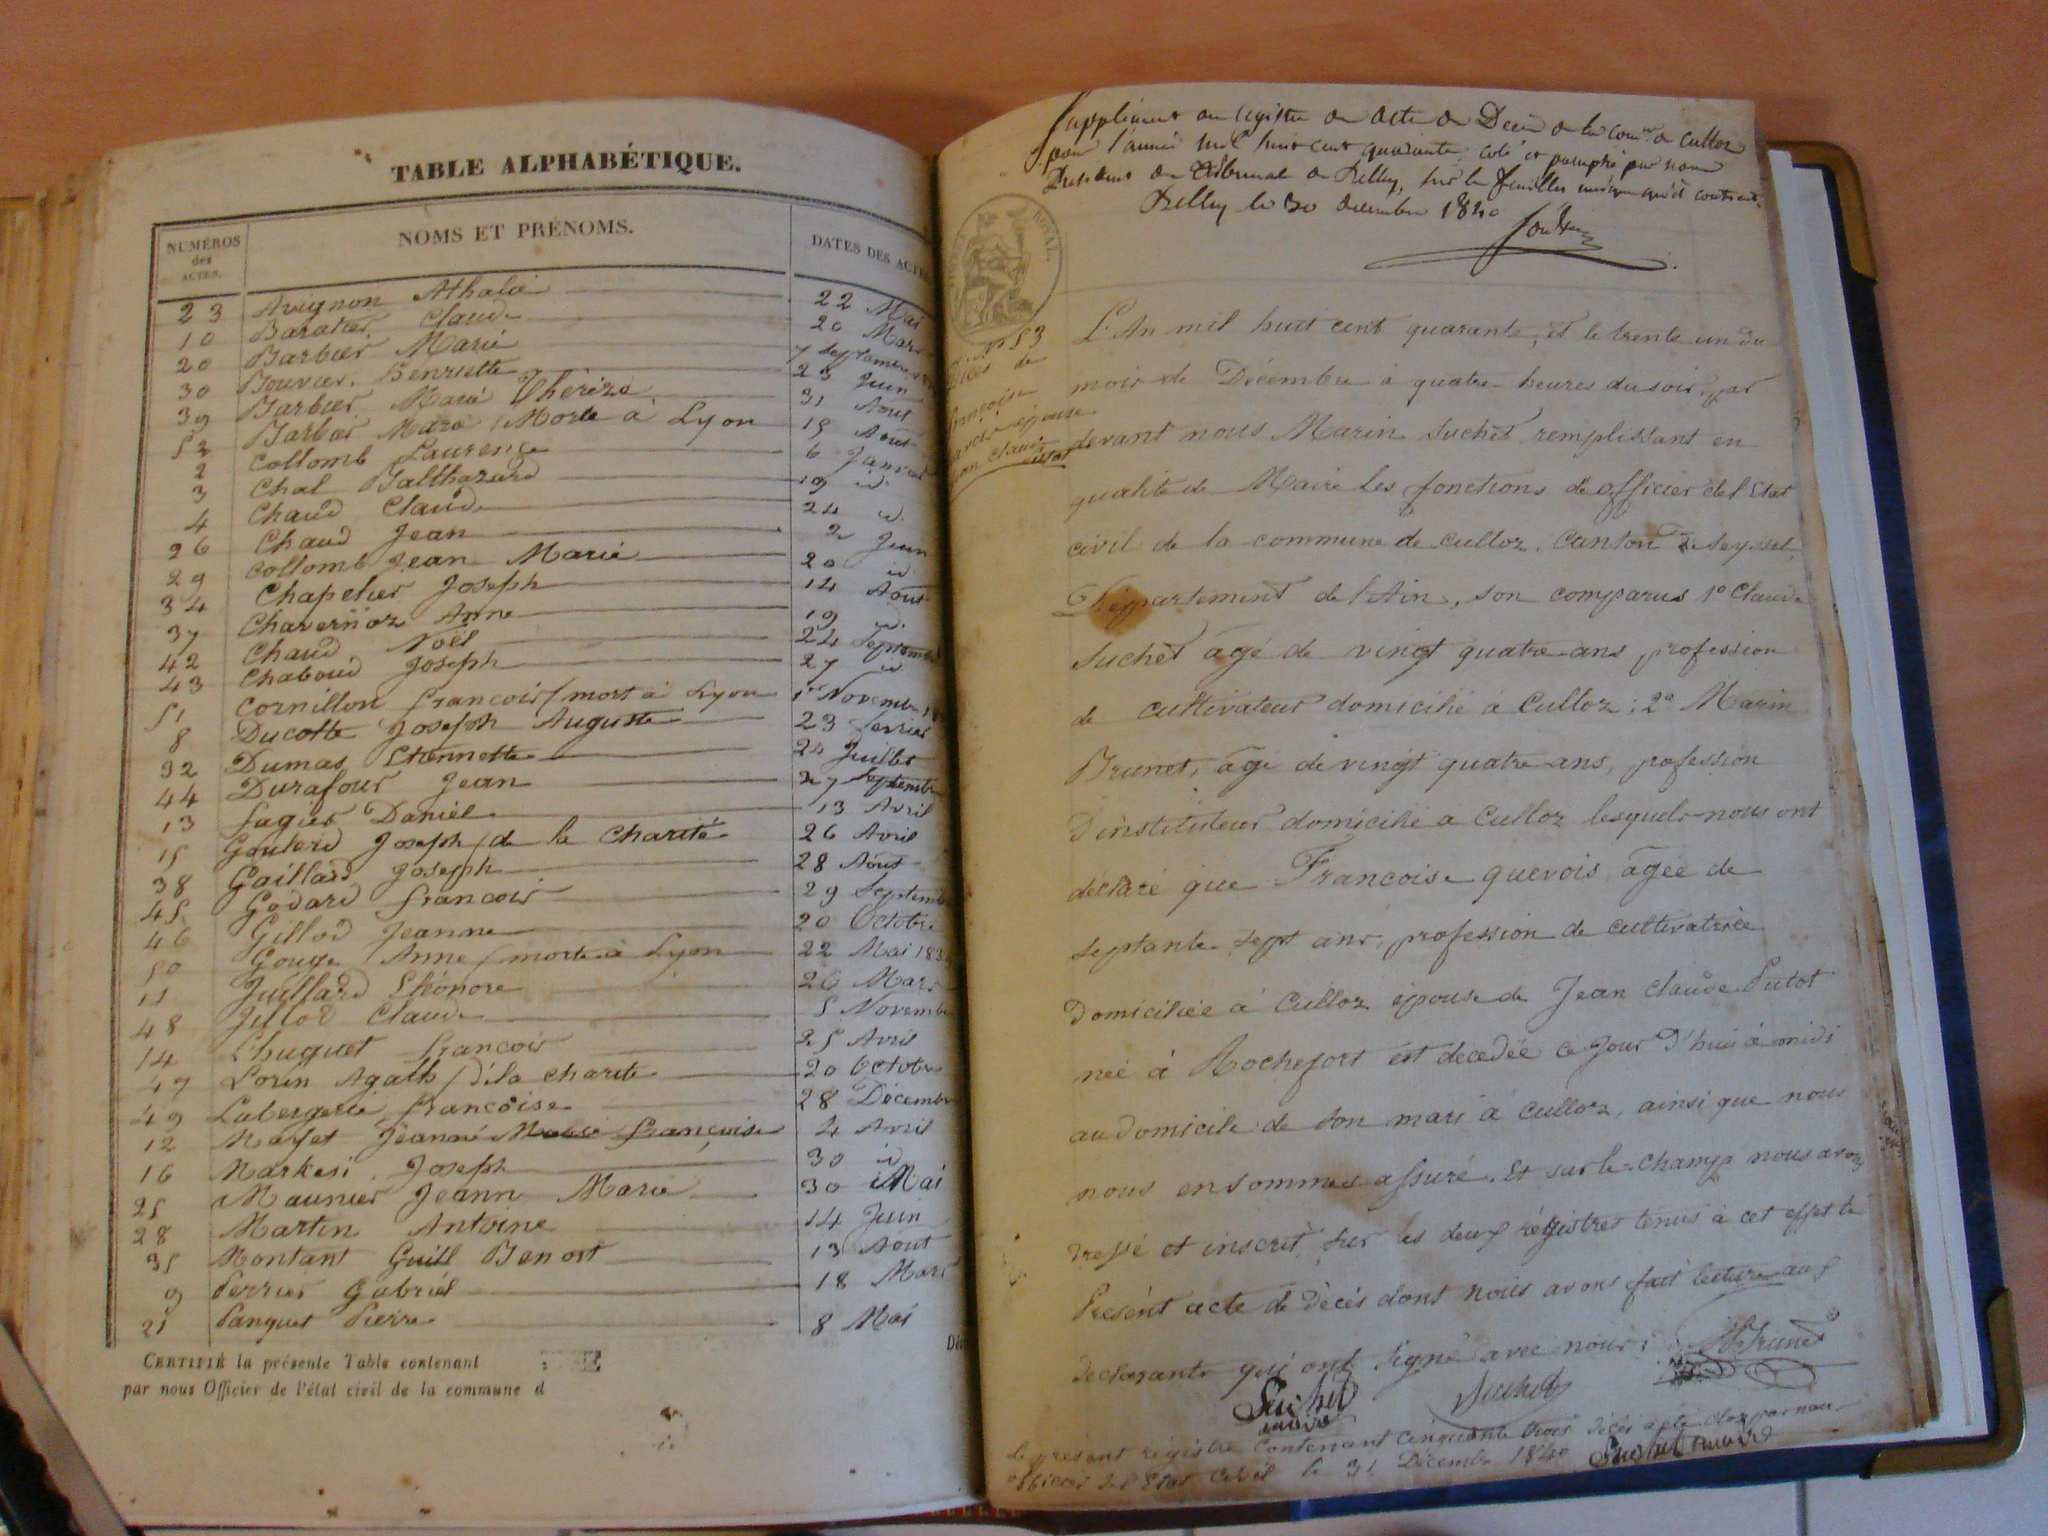 TABLE ALPHABÉTIQUE.
NUMÉROS des ACTES. NOMS ET PRÉNOMS. DATES DES ACTES
23 Avignon Athalie 22 Mai
10 Baratier Claude 20 Mars
20 Barbier Marie 7 Septembre
30 Bouvier Benriette 23 Juin
39 Barbier Marie Thérèze 31 Aout
52 Barbier Marie (Morte à Lyon 15 Aout
2 Collomb Laurence 6 Janvier
3 Chal Balthazard 19 id.
4 Chaud Claude 24 id.
26 Chaud Jean 2 Juin
29 Collomb Jean Marie 20 id.
34 Chapelier Joseph 14 Aout
37 Chavernoz Anne 19 id.
42 Chaud Noël 24 Septembre
43 Chaboud Joseph 27 id
51 Cornillon francois (mort à Lyon 1er Novembre
8 Ducotte Joseph Auguste 23 fevrier
32 Dumas Ethennette 24 Juillet
44 Durafour Jean 27 Septembre
13 fagier Daniel 13 Avril
15 Joseph (de la Charité 26 Avril
38 Gaillard Joseph 28 Aout
45 Godard francois 29 Septembre
46 Gillod Jeanne 20 Octobre
50 Gouge Anne (morte à Lyon 22 Mai 183
11 Juillard Eléonore 26 Mars
48 Jillod Claude 5 Novembre
14 Lhuguet francois 25 Avril
47 Lorin Agath (de la charité 20 Octobre
49 Labergerie francoise 28 Décembre
12 Jeanne Marie françoise 4 Avril
16 Markesi Joseph 30 id
25 Maunier Jeann Marie 30 Mai
28 Martin Antoine 14 Juin
35 Montant Guill Benoit 13 Aout
9 Perrier Gabriel 18 Mars
21 Panguet Pierre 8 Mai
CERTIFIÉ la présente Table contenant
par nous Officier de l'état civil de la commune d
Supplément au registre des actes de Décès de la comne de Culloz
pour l'année mil huit cent quarante, coté et paraphé par nous
Président du Tribunal de Belley, sur la feuille unique qu'il contient.
Belley le 30 décembre 1840
ROYAL.
No 53
Décès de
françoise
quevois épouse
Jean Claude
Putot
L'An mil huit cent quarante, et le trente un du
mois de Décembre à quatre heures du soir, par
devant nous Marin Suchet remplissant en
qualité de Maire les fonctions de officier de l'Etat
civil de la commune de Culloz, Canton de Seyssel,
Déppartement de l'Ain, son comparus 1o Claude
Suchet agé de vingt quatre ans profession
de cultivateur domicilié à Culloz; 2o Marin
Brunet, agé de vingt quatre ans, profession
d'instituteur domicilié a Culloz lesquels nous ont
déclaré que Francoise quevois agée de
septante sept ans, profession de cultivatrice
domiciliée à Culloz épouse de Jean Claude Putot
née à Rochefort est decedée ce jour d'hui à midi
au domicile de son mari à Culloz, ainsi que nous
nous en sommes assuré. Et sur le champ nous avons
dressé et inscrit sur les deux régistres tenus à cet effet le
Présent acte de décès dont nous avons fait lecture aux
declarants qui ont signé avec nous: Brunet
Suchet Suchet
maire
Le présent régistre contenant cinquante trois décès a été clos par nous
officier de l'Etat civil le 31 Décembre 1840 Suchet maire